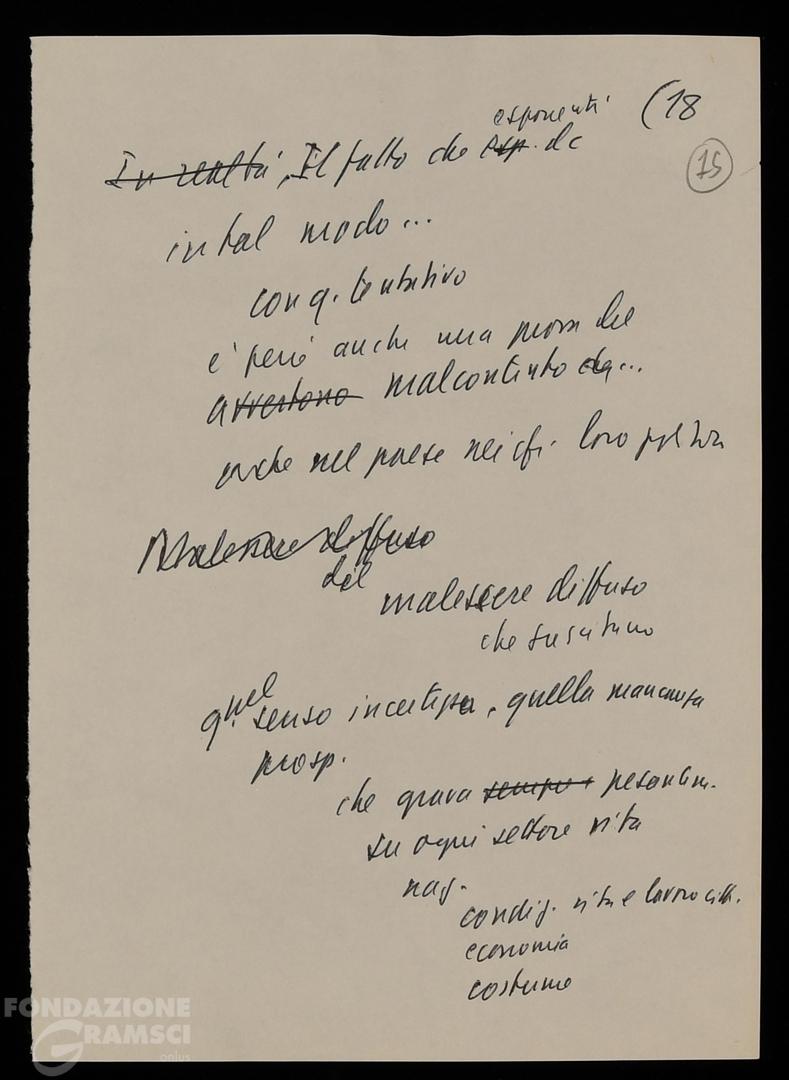 (18
15
esponenti
In realtà, Il fatto che esp. dc
in tal modo...
con q. tentativo
e' però anche una prova del
avvertono malcontento che...
anche nel paese nei cfr. loro politica
Malessere diffuso
del
malessere diffuso
che suscitano
quel senso incertezza, quella mancanza
prosp.
che grava sempre pesantem.
su ogni settore vita
naz.
condiz. vita e lavoro citt.
economia
costume
FONDAZIONE
GRAMSCI
onlus